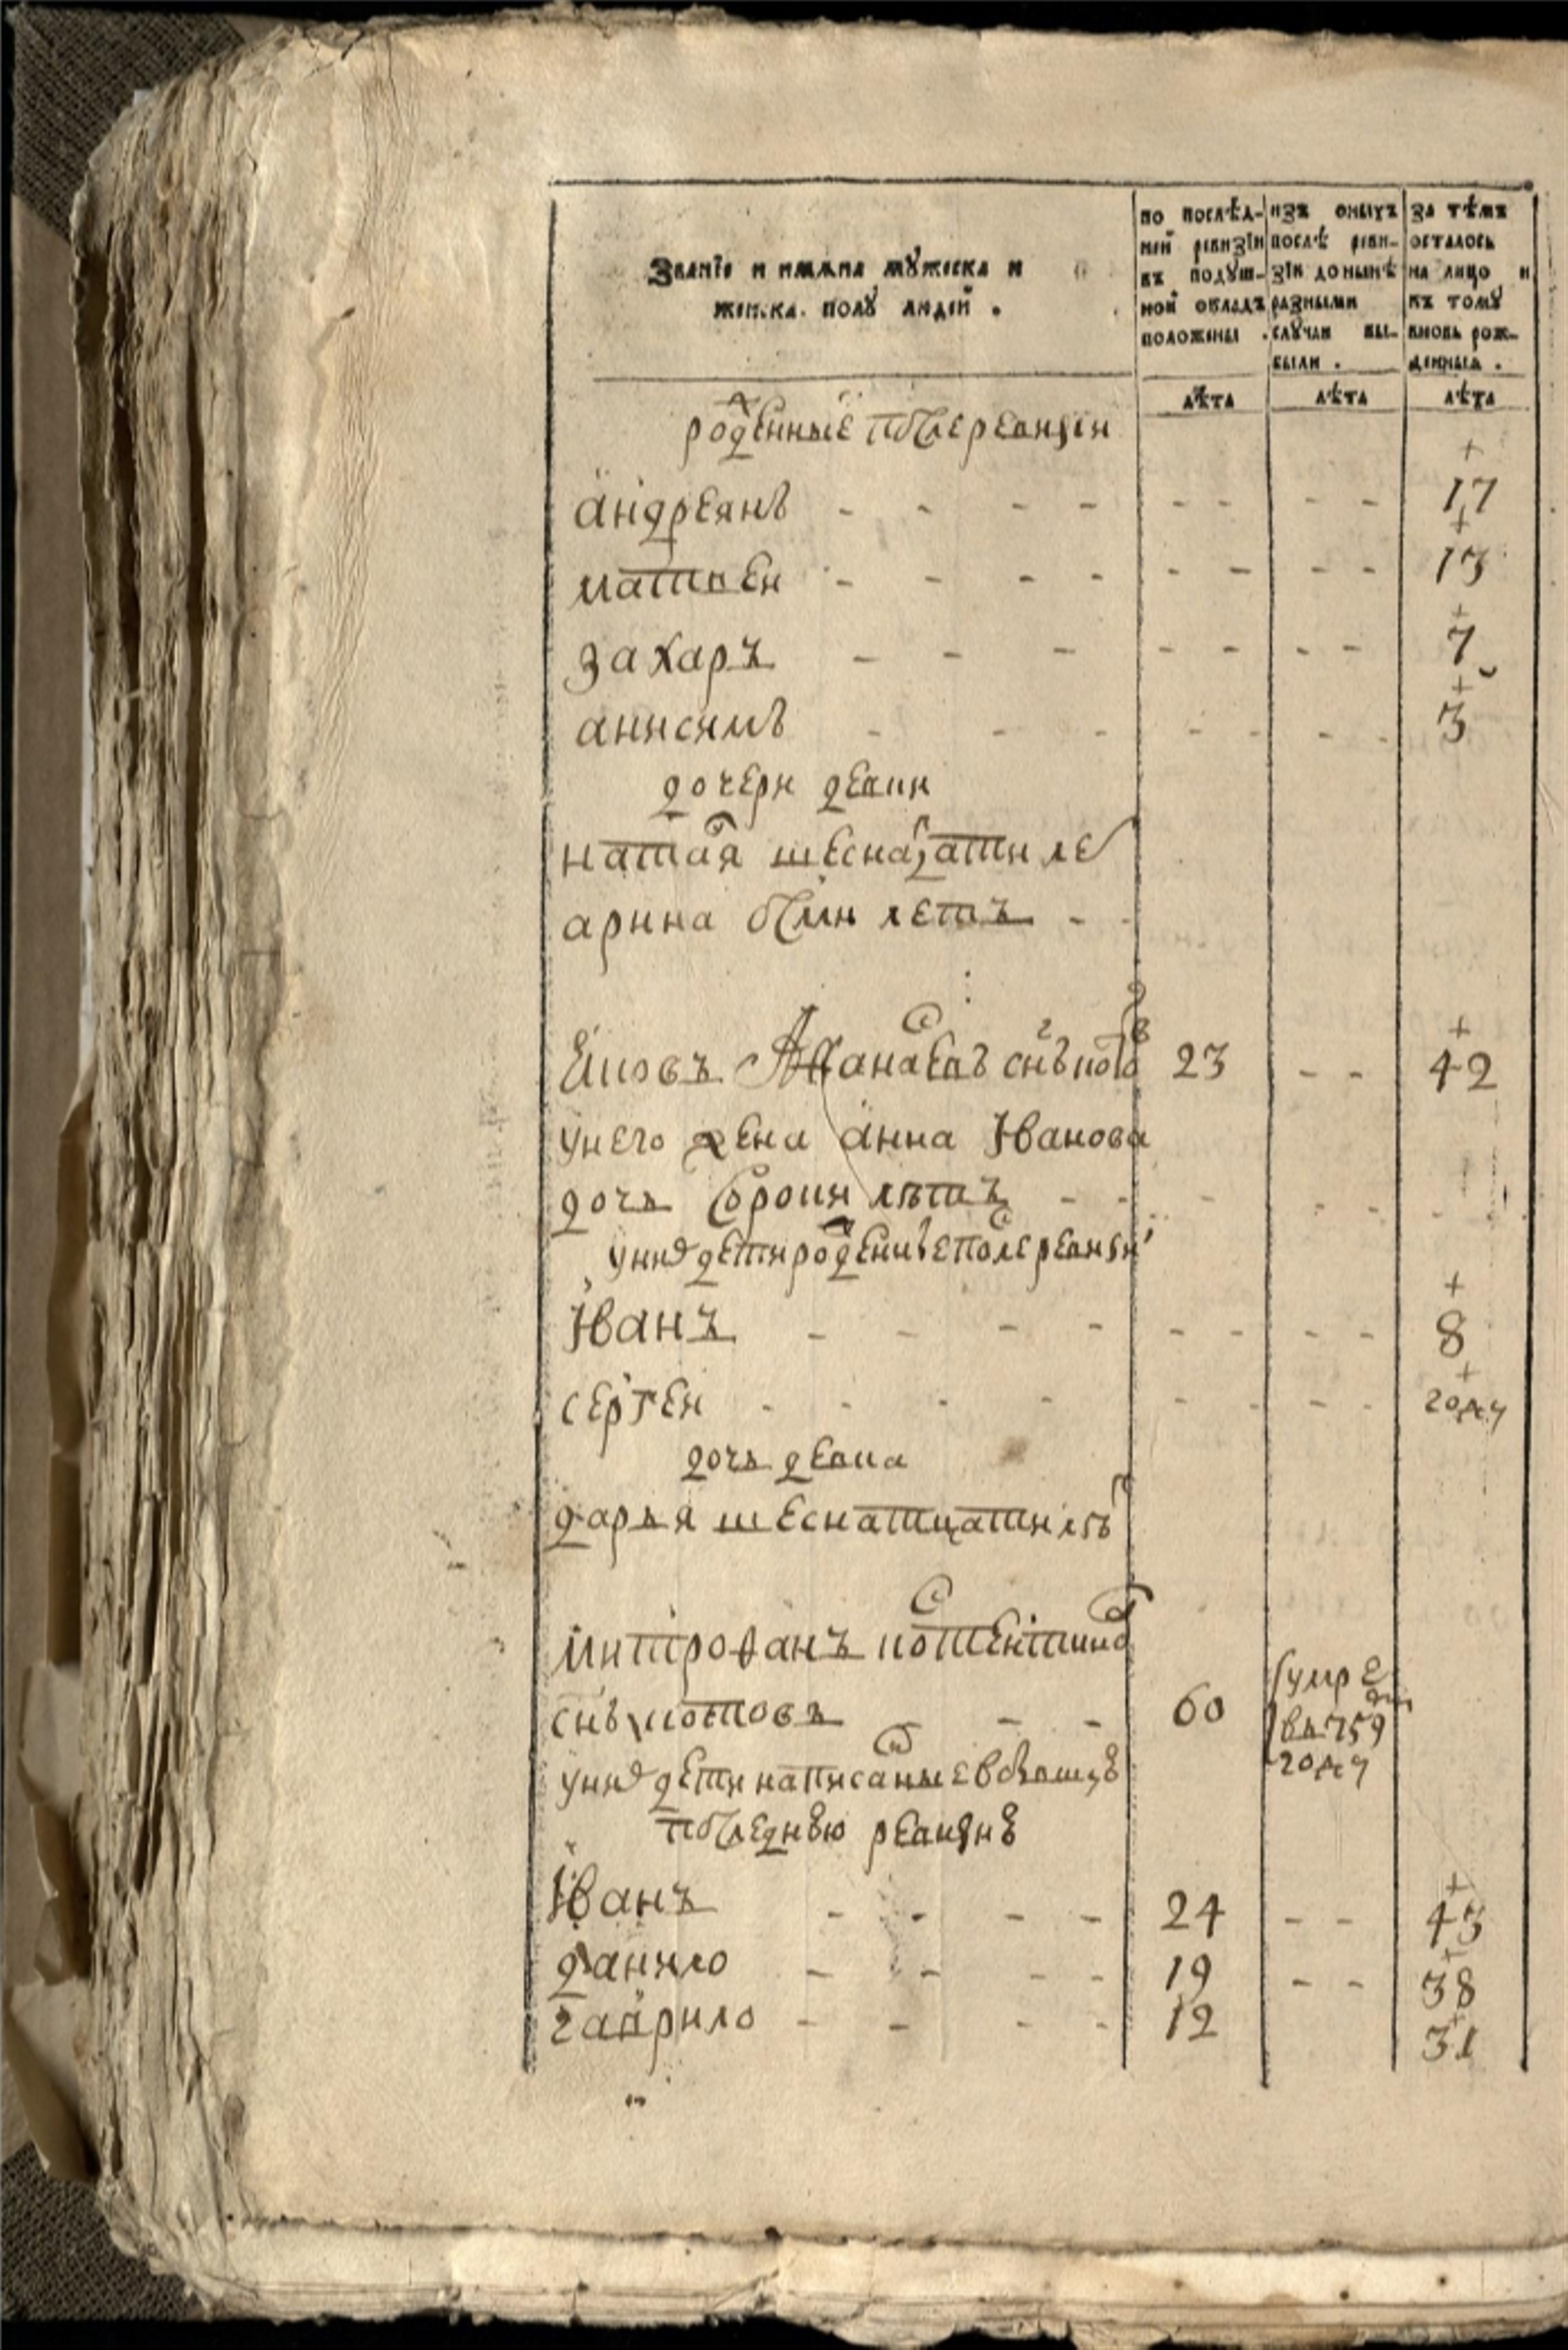 Званїе и имѧна мꙋжеска и
женска полꙋ людей .
по послѣд-
ней ревизїи
въ подуш-
ной окладъ
положены .
изъ оныхъ
послѣ реви-
зїи до нынѣ
разными
случаи вы-
были .
за тѣмъ
осталось
на лицо и
къ томꙋ
вновь рож-
денныя .
лѣта лѣта лѣта
рожденные после ревизіи
андреянъ - - - - - - - - 17
матвеи - - - - - - - - 13
захаръ - - - - - - - 7
анисимъ - - - - - - - 3
дочери девки
наталя шеснатцати лет
арина осми летъ - -
Яковъ Афанасевъ снъ 23 - - 42
унего жена анна Иванова
дочь сорока летъ - -
уних дети рожденые после ревизіи
Иванъ - - - - - - - - 8
сергеи - - - - - - - - году
дочь девка
дарья шеснатцати летъ
митрофанъ
снъ - - 60 умре
в 759
году
уних дети написаные в бывшую
последнюю ревизию
Иванъ - - - - 24 - - 43
данило - - - - 19 - - 38
гаврило - - - - 12 31